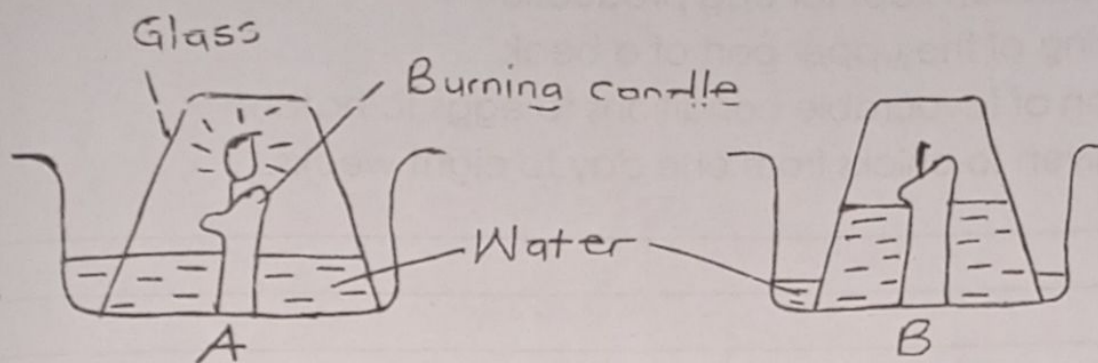 Glass
Burning candle
Water
A
B